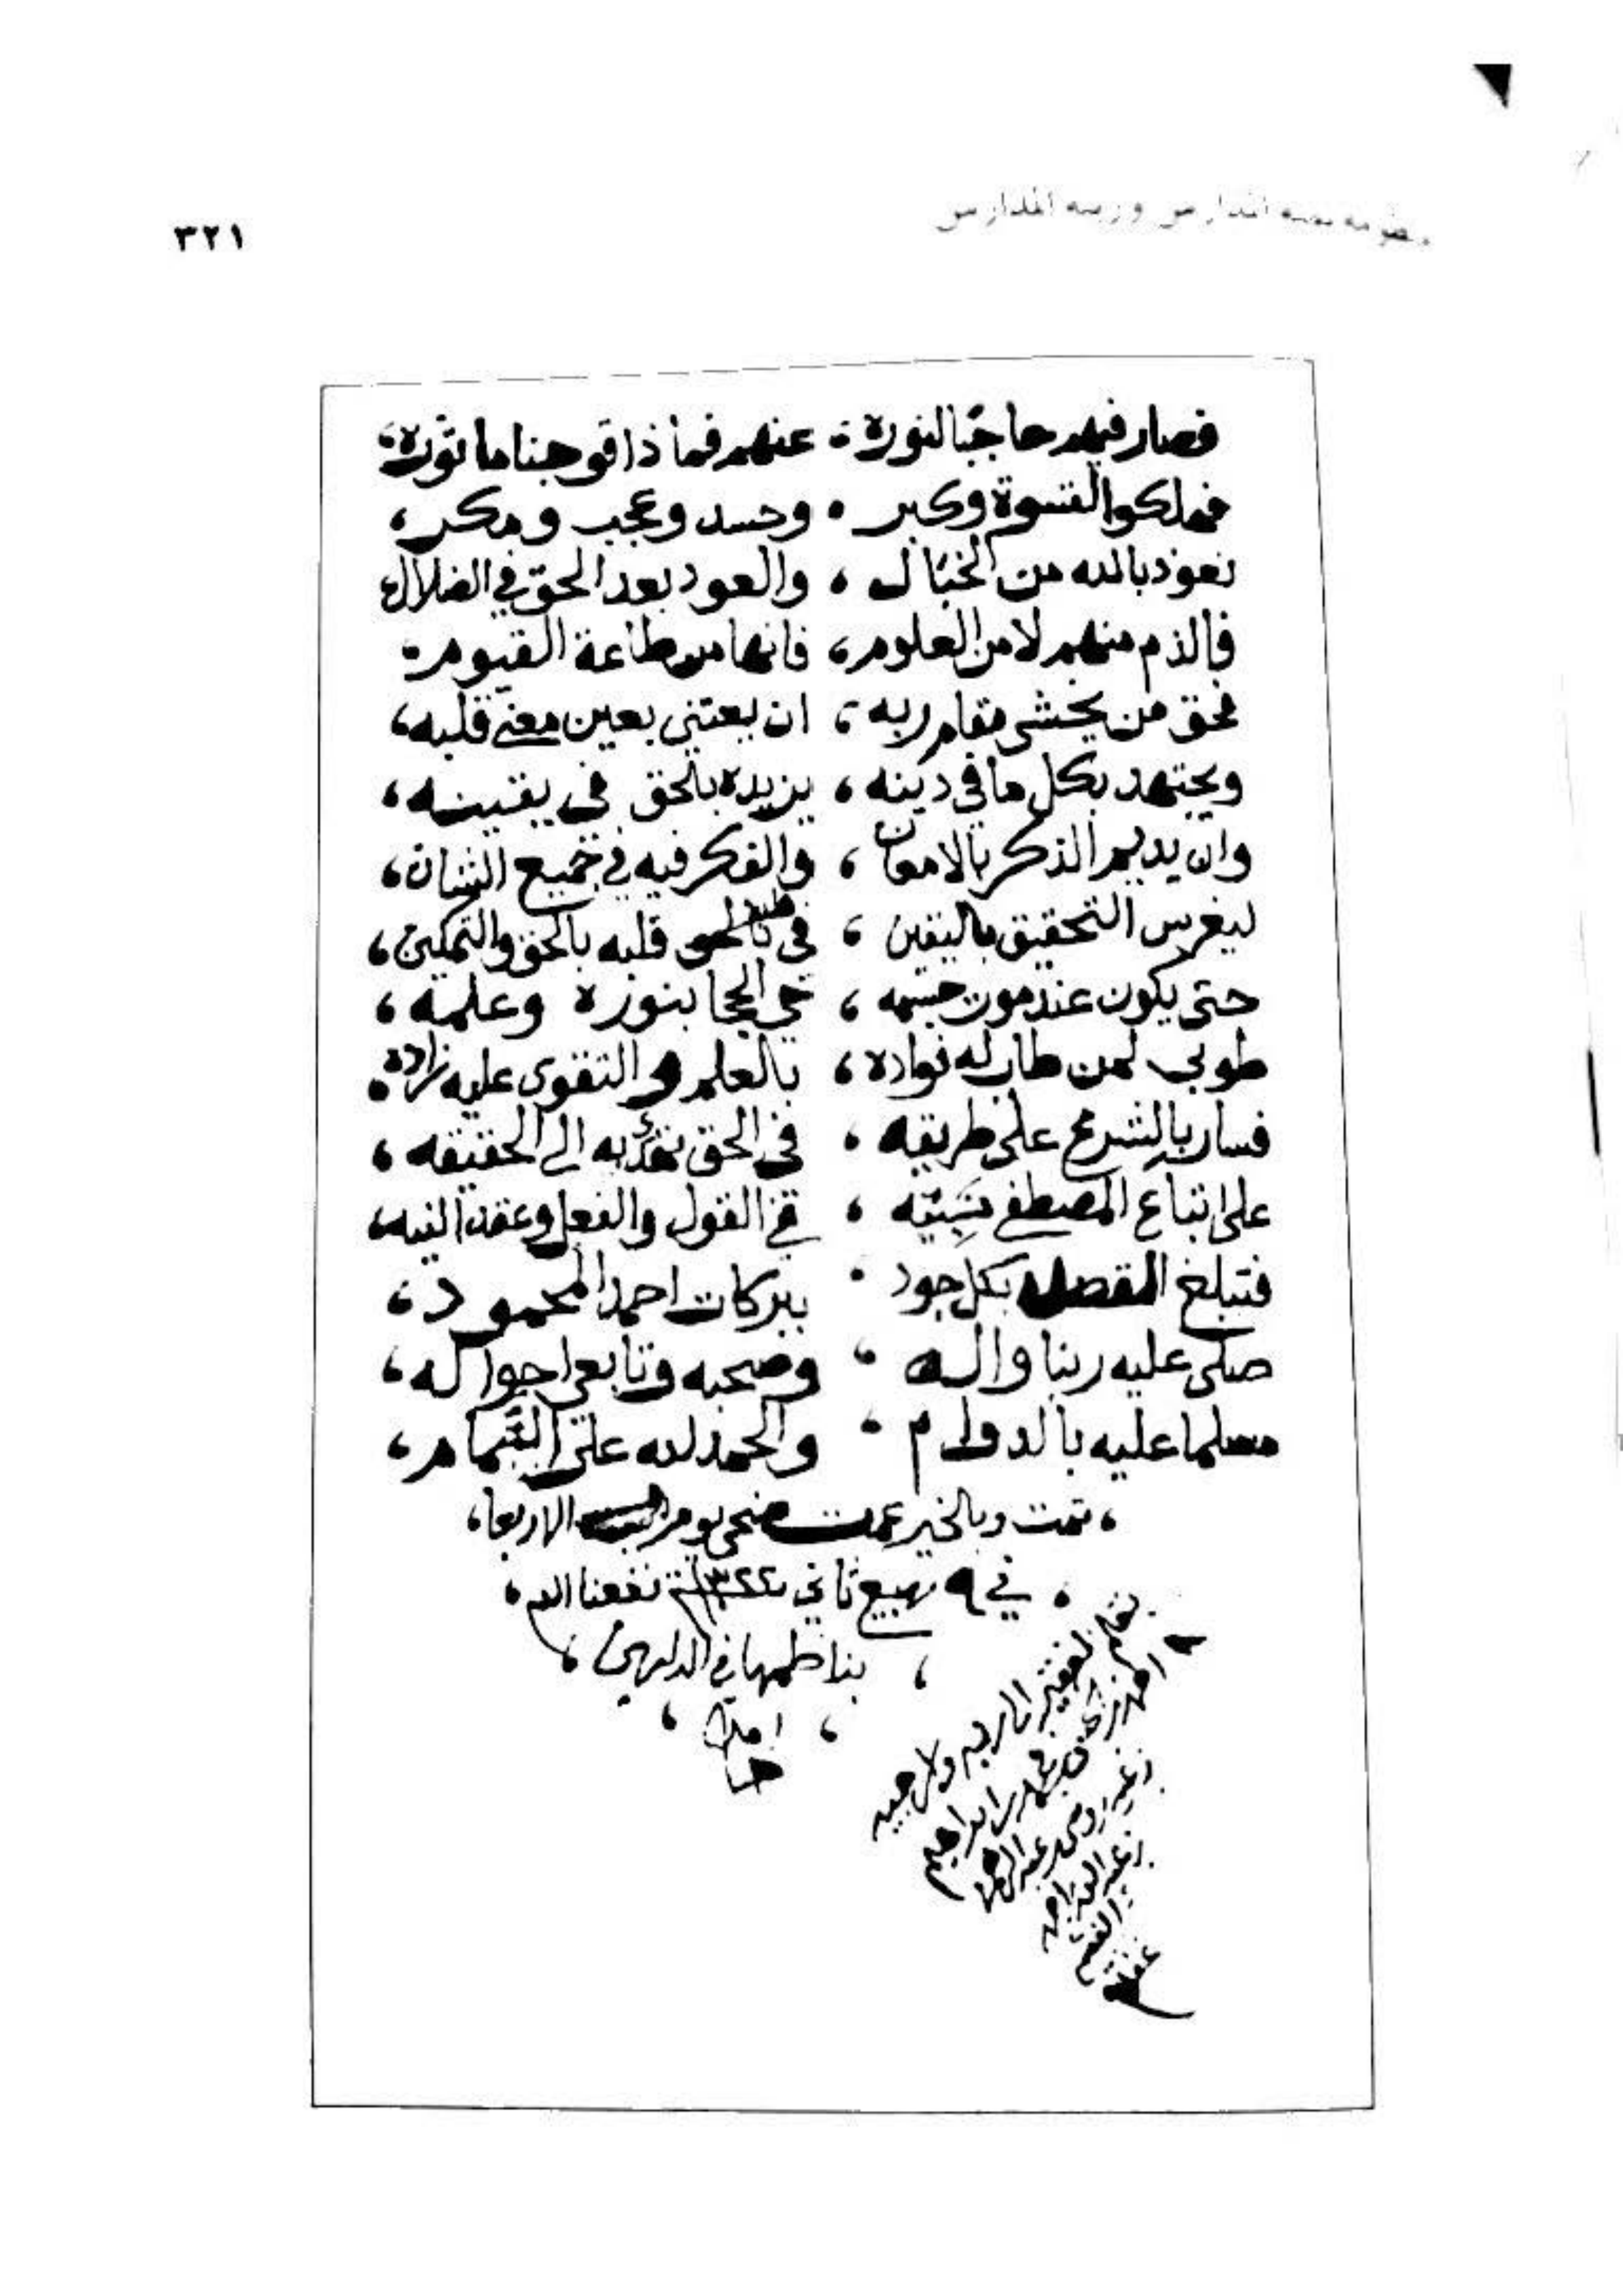 ٣٢١
فصار فيهم حاجبًا لنوره عنهم فما ذاقو جنا ماثوره،
فملكوا القسوة وكبر ، وحسد وعجب ومكر،
نعوذ بالله من الخبال ، والعود بعد الحق في الضلال،
فالذم منهم لا من العلوم، فانها من طاعة القيوم
فحق من يخشى مقام ربه، ان يعتني بعين معنى قلبه،
ويجتهد بكل ما في دينه ، يزيده بالحق في يقينه،
وان يديم الذكر بالامعان ، والفكر فيه في جميع الشان،
ليغرس التحقيق باليقين ، في قلبه بالحق والتمكين،
حتى يكون عند موت جسمه ، حي الحجا بنوره وعلمه ،
طوبى لمن طاب له فواده ، بالعلم و التقوى عليه زاده،
فسار بالشرع على طريقه ، في الحق به الى الحقيقه ،
على اتباع المصطفى نبيه ، في القول والفعل وعقد النيه،
فتبلغ المقصد بكل جود ، ببركات احمد المحمود،
صلى عليه ربنا واله ، وصحبه وتابعي احواله،
مسلما عليه بالدوام ، والحمد لله على التمام،
، تمت وبالخير عمت ضحى يوم الاربعا،
، في ٩ ربيع ثاني سنة ١٣٢٢ نفعنا الله ،
، بناظمها في الدارين ،
، امين ،